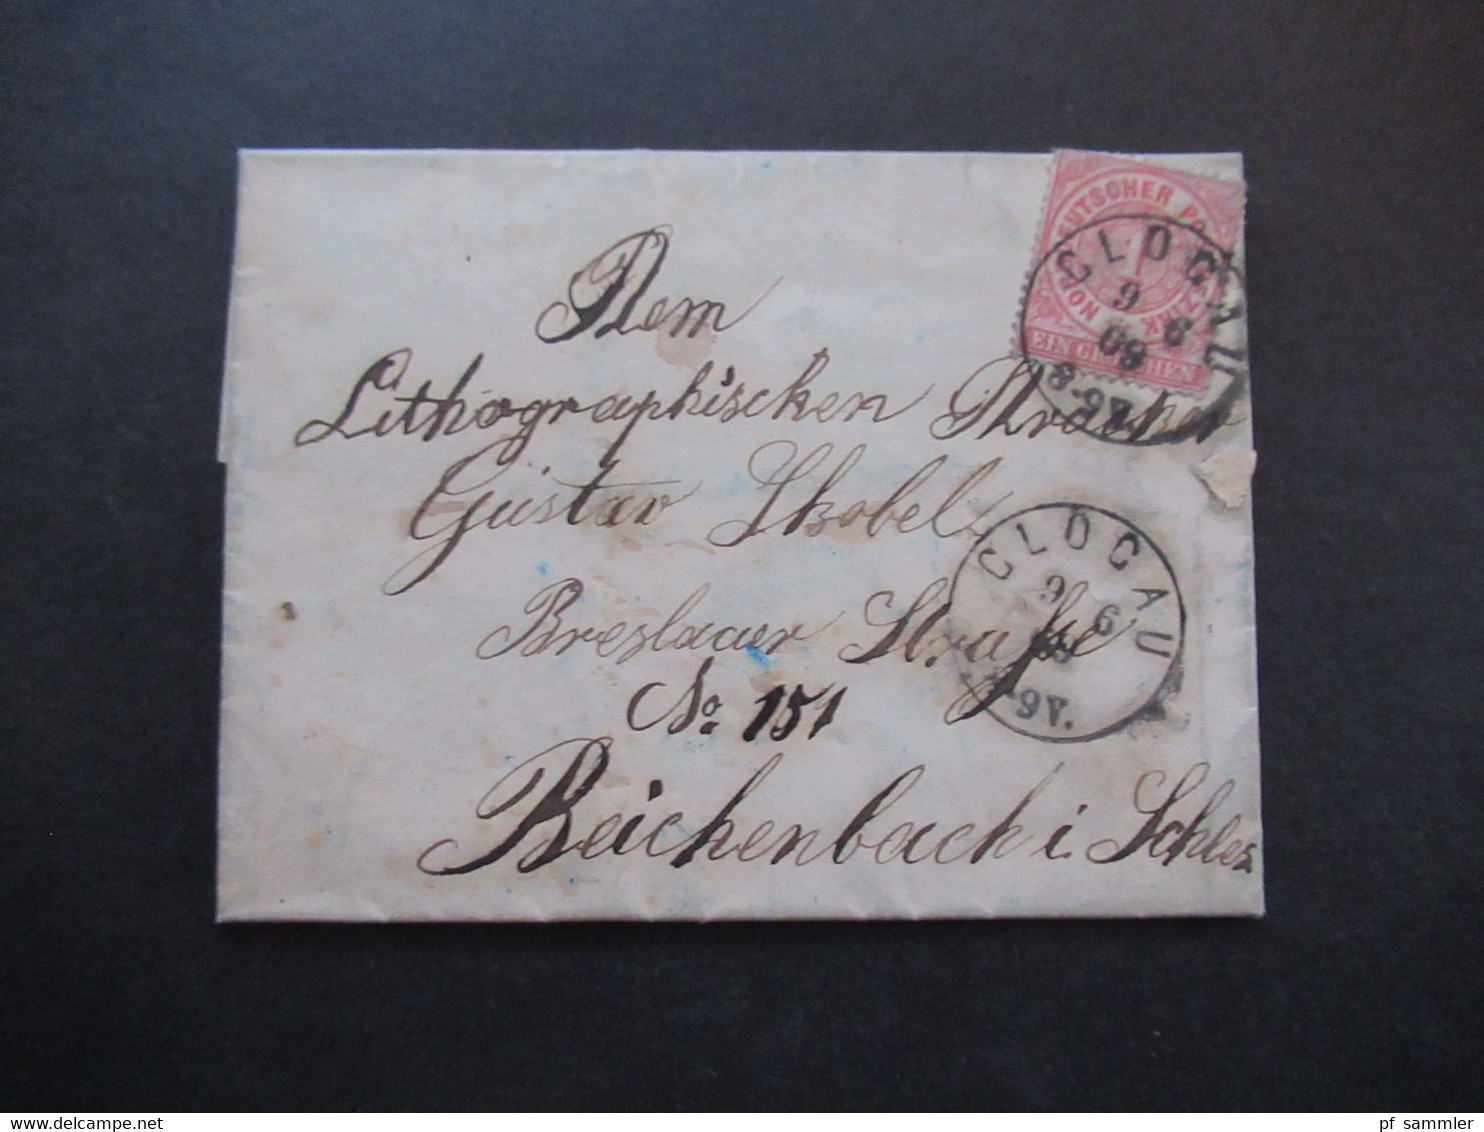 NORDDEUTSCHER POSTBEZIRK
1
EIN GROSCHEN
GLOGAU
9 6
69
8-9V.
Dem
Lithographischen Drucker
Gustav Skobel
Breslauer Straße
No 151
Reichenbach i. Schles
GLOGAU
9 6
69
8-9V.
delcampe.net
pf_sammler